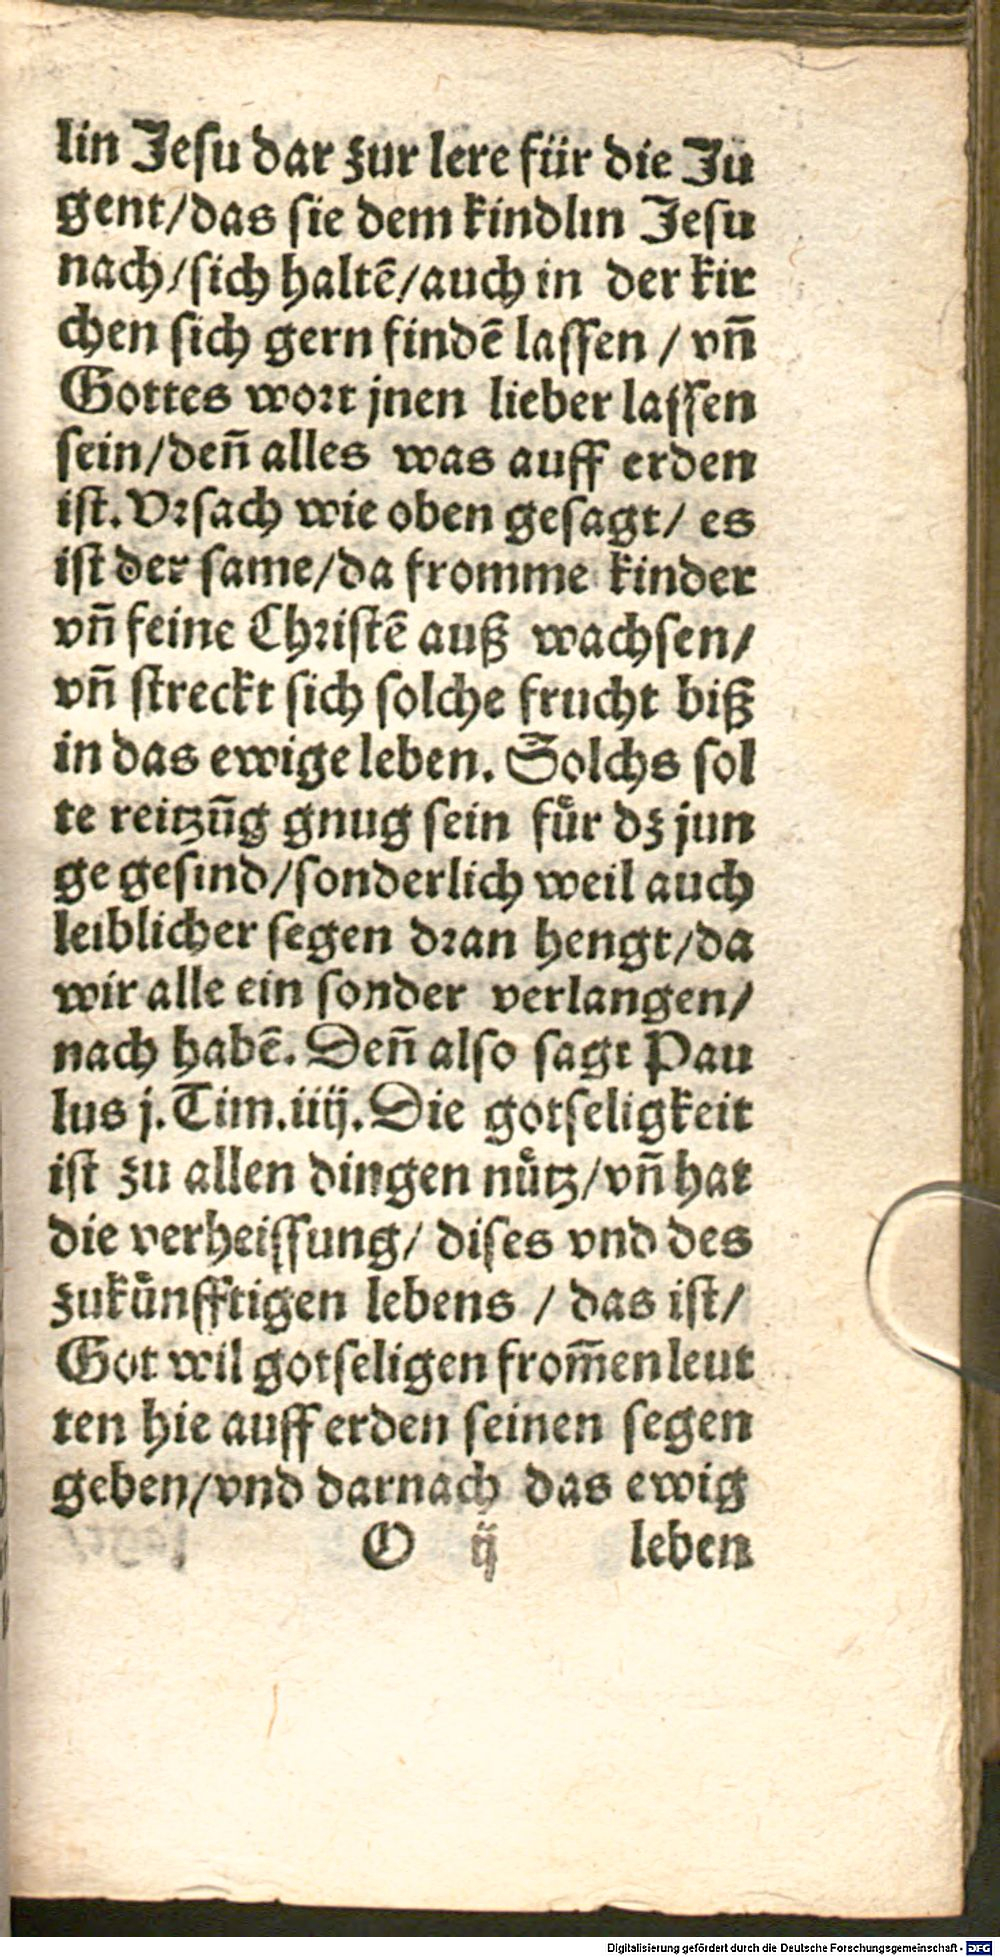 lin Jeſu dar zur lere für die Ju
gent/das ſie dem kindlin Jeſu
nach/ſich haltē/auch in der kir
chen ſich gern findē laſſen / vn̄
Gottes woꝛt jnen lieber laſſen
ſein/den̄ alles was auff erden
iſt. Vꝛſach wie oben geſagt/ es
iſt der ſame/da fromme kinder
vn̄ feine Chꝛiſtē auß wachſen/
vn̄ ſtreckt ſich ſolche frucht biß
in das ewige leben. Solchs ſol
te reitzūg gnug ſein fuͤr dz jun
ge geſind/ſonderlich weil auch
leiblicher ſegen dꝛan hengt/da
wir alle ein ſonder verlangen/
nach habē. Den̄ alſo ſagt Pau
lus j. Tim. iiij. Die gotſeligkeit
iſt zu allen dingen nuͤtz/vn̄ hat
die verheiſſung/ diſes vnd des
zukuͤnfftigen lebens / das iſt/
Got wil gotſeligen from̄en leut
ten hie auff erden ſeinen ſegen
geben/vnd darnach das ewig
O ij leben
Digitalisierung gefördert durch die Deutsche Forschungsgemeinschaft - DFG